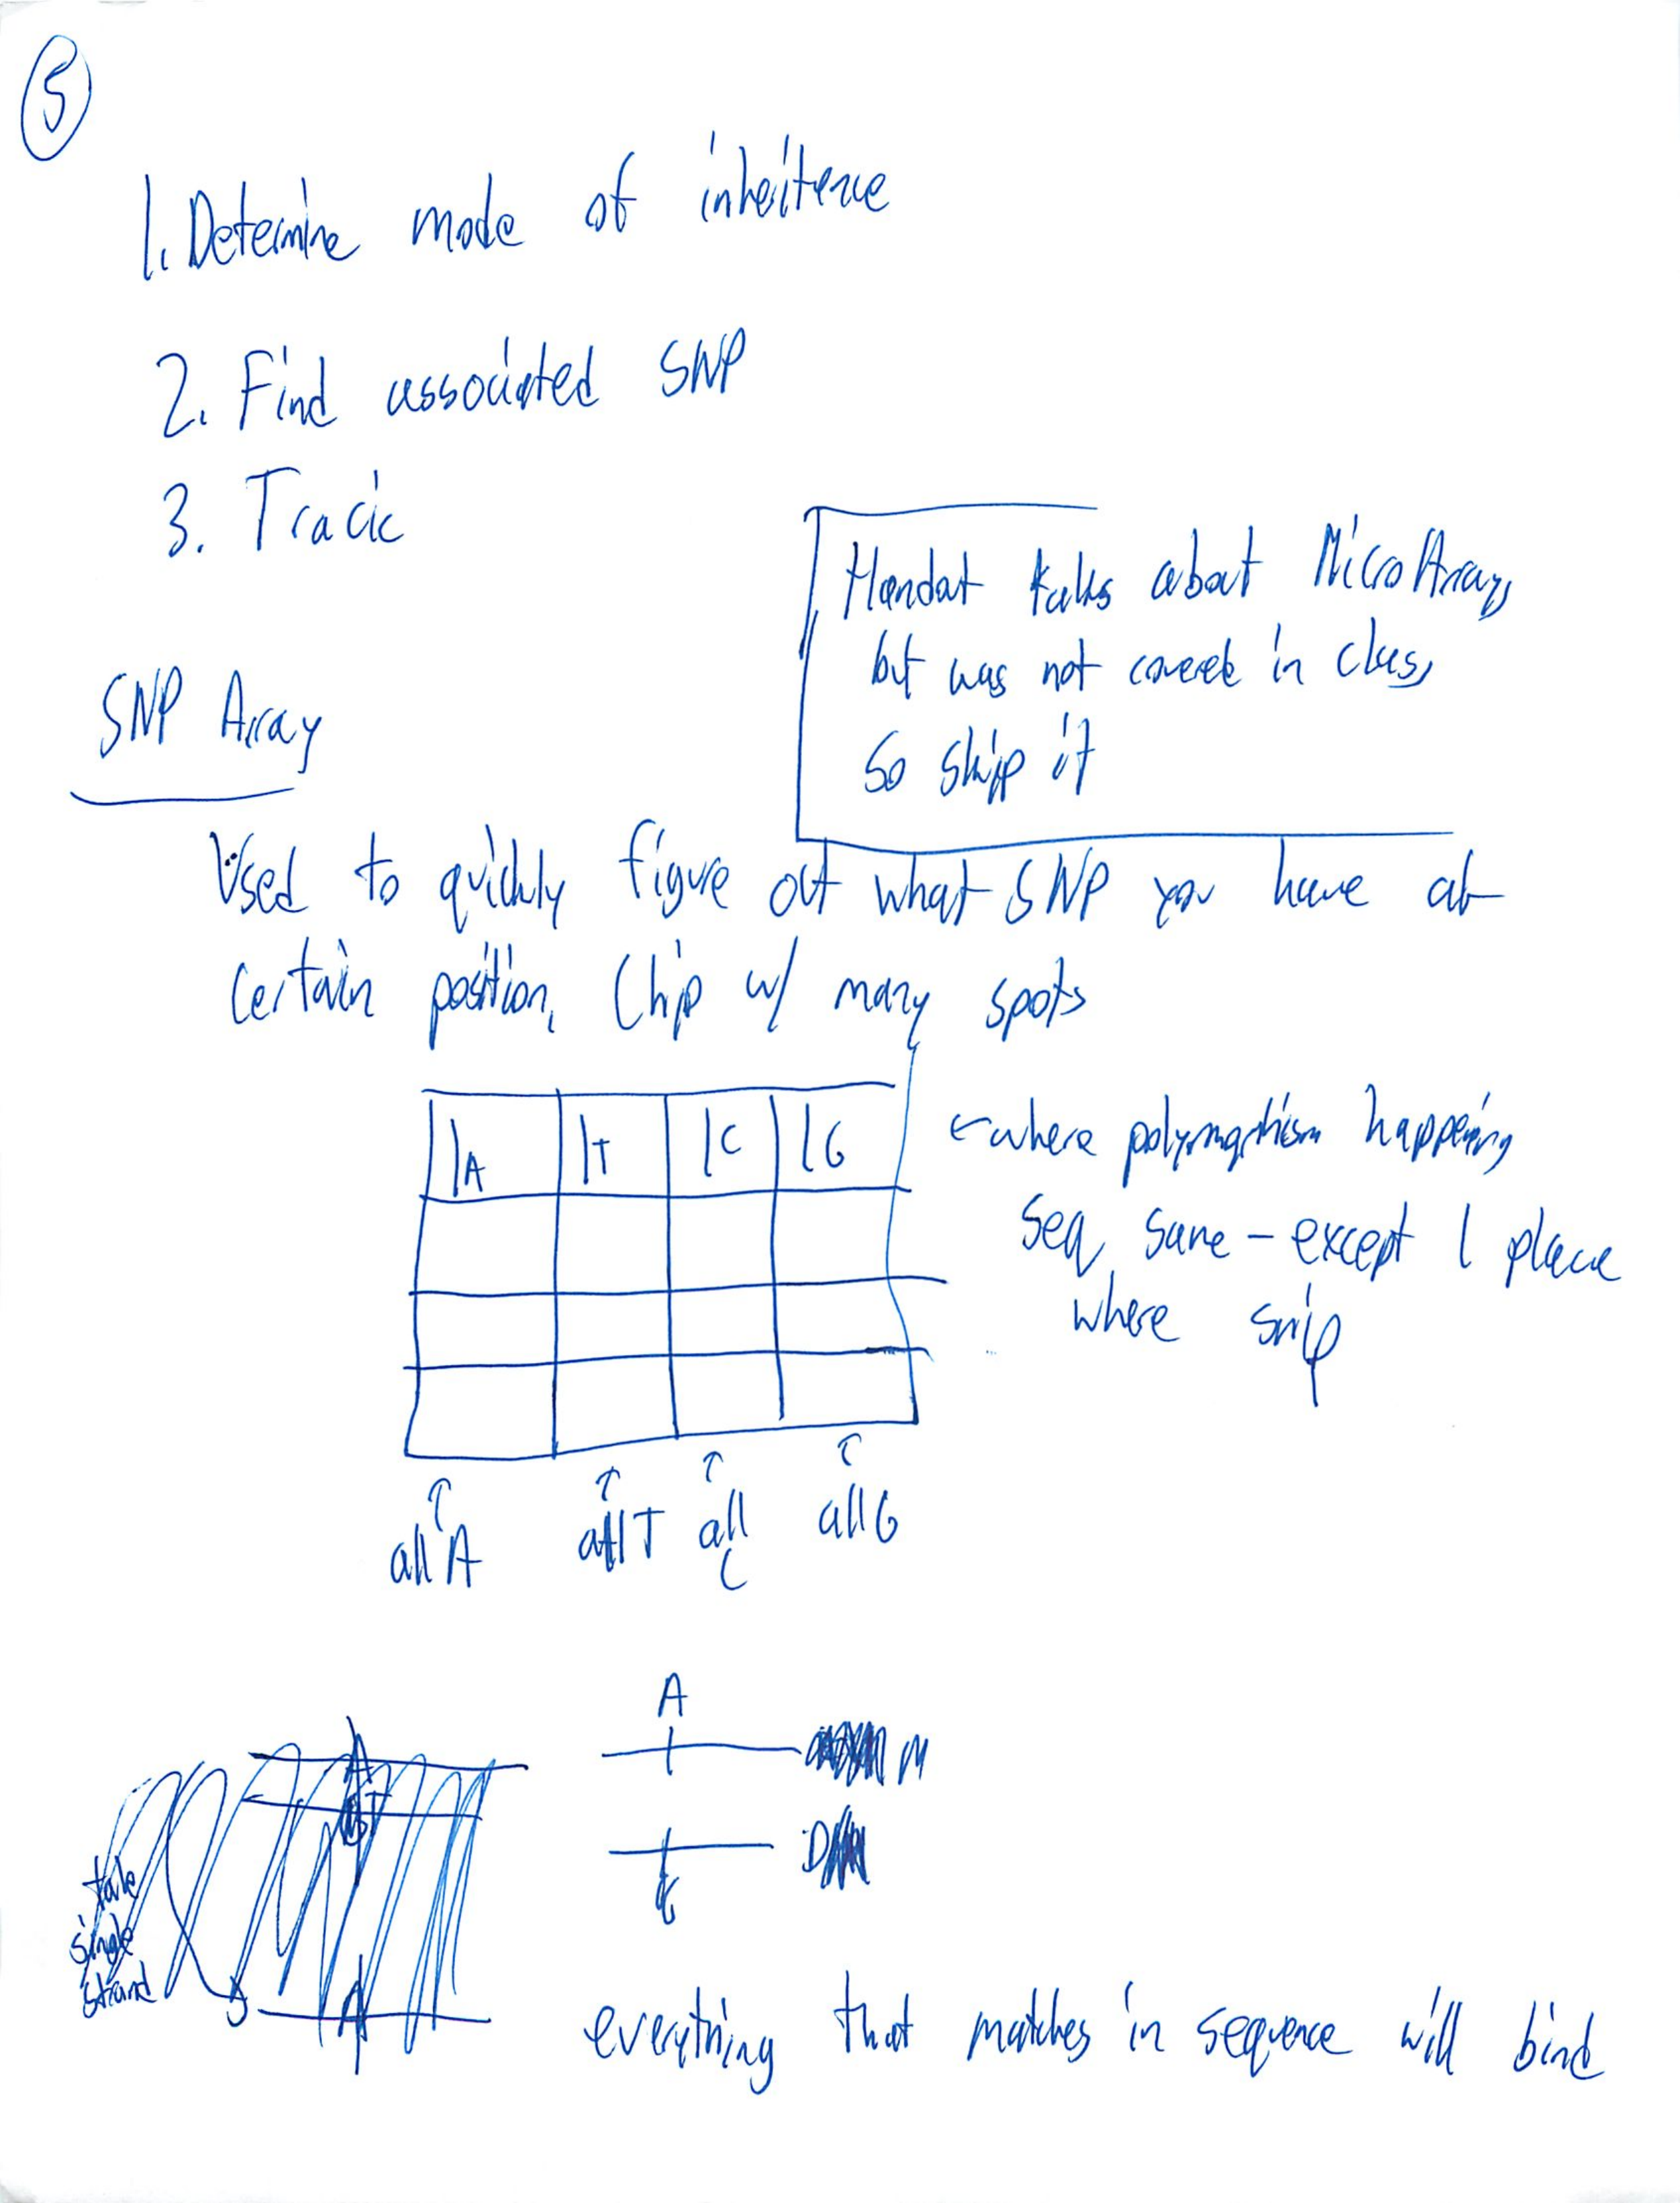 5
1. Determine mode of inheritence
2. Find associated SNP
3. Track
Handout talks about MicroArray,
but was not covered in class,
so skip it
SNP Array
Used to quickly figure out what SNP you have at
certain position, Chip w/ many spots
A T C G
←where polymorphism happening
seq. same - except 1 place
where snip
↑ ↑ ↑ ↑
all A all T all C all G
A
M
D
take
single
strand
A
T
A
everything that matches in sequence will bind